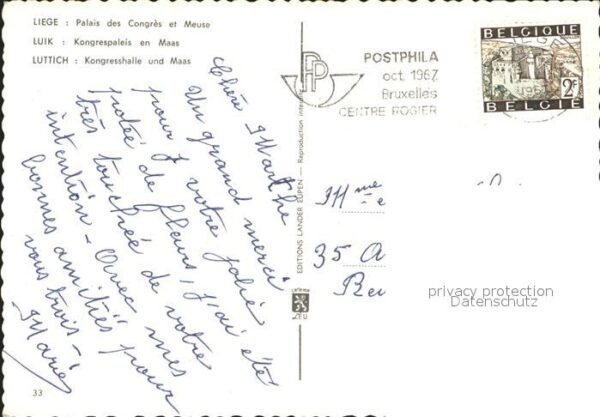 LIEGE : Palais des Congrès et Meuse
LUIK : Kongrespaleis en Maas
LUTTICH : Kongresshalle und Maas
Chère Marthe
Un grand merci
pour votre jolie
potée de fleurs, j'ai été
très touchée de votre
intention - Avec mes
bonnes amitiés pour
vous trois -
Marie
33
EDITIONS LANDER EUPEN — Reproduction interdite
PP
POSTPHILA
oct 1967
Bruxelles
CENTRE ROGIER
BELGIQUE
2F
BELGIË
Mme
35 A
privacy protection
Datenschutz